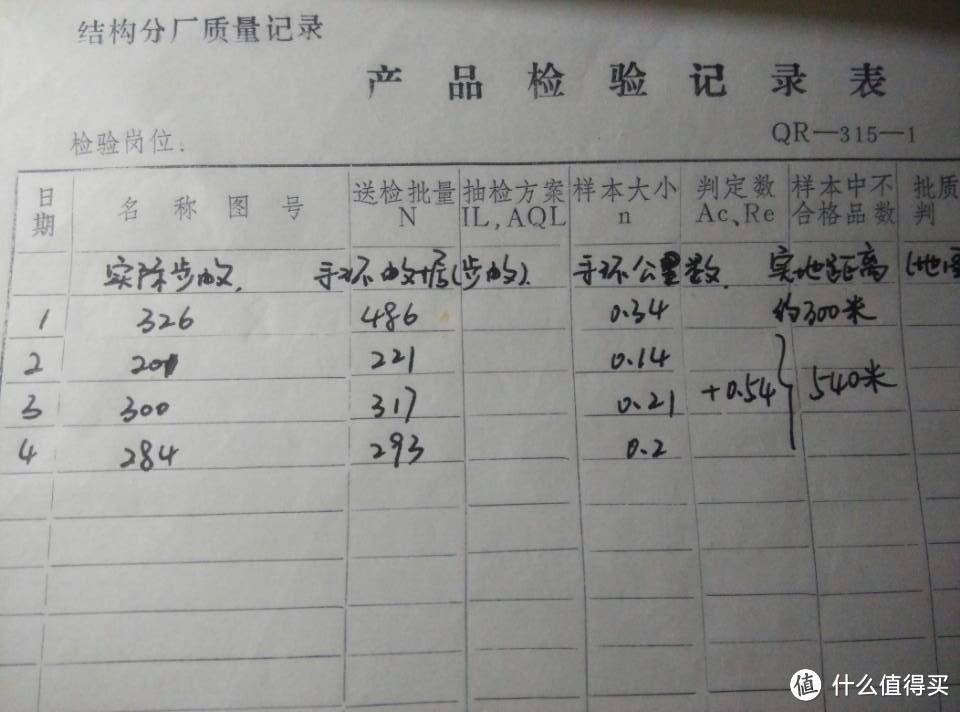 结构分厂质量记录
产品检验记录表
检验岗位: QR—315—1
日期 名称图号 送检批量 N 抽检方案 IL,AQL 样本大小 n 判定数 Ac、Re 样本中不合格品数 批质 判
实际步数. 手环数据(步数). 手环公里数. 实地距离 (地图
1 326 486 0.34 约300米
2 201 221 0.14
3 300 317 0.21 +0.54 540米
4 284 293 0.2
值 什么值得买